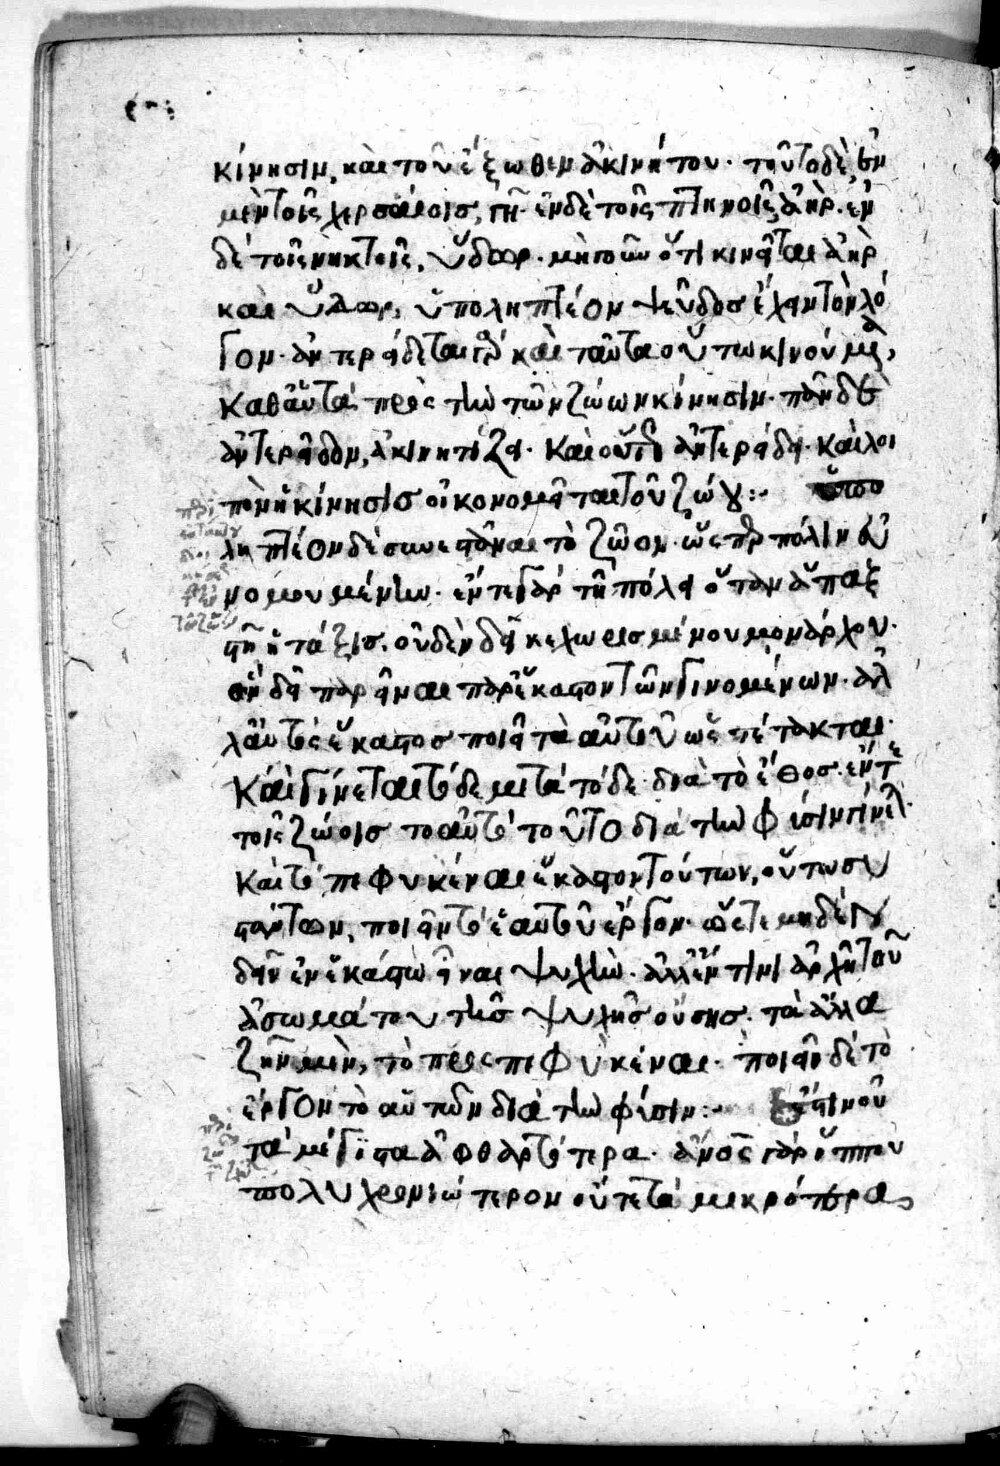 κίνησιν, καὶ τοῦ ἔξωθεν ἀκινήτου· τοῦτο δὲ, ἐν
μὲν τοῖς χερσαίοις, γῆ· ἐν δὲ τοῖς πτηνοῖς, ἀήρ· ἐν
δὲ τοῖς νηκτοῖς, ὕδωρ· μὴ τοῦν ὅτι κινεῖται ἀὴρ
καὶ ὕδωρ, ὑποληπτέον ψεῦδος ἔχειν τὸν λό
γον· ἀντερείδεται γὰρ καὶ ταῦτα οὕτω κινούμενα,
καθ' αὑτὰ πρὸς τὴν τῶν ζώων κίνησιν· πᾶν δὲ
ἀντερεῖδον, ἀκινητίζει· καὶ οὕτω ἀντερείδει· καὶ λοι
πὸν ἡ κίνησις οἰκονομεῖται τοῦ ζώου:- ὑπο
ληπτέον δὲ συνεστάναι τὸ ζῶον· ὥσπερ πόλιν εὐ
νομουμένην· ἔν τε γὰρ τῇ πόλει ὅταν ἅπαξ
στῇ ἡ τάξις· οὐδὲν δεῖ κεχωρισμένου μονάρχου·
ὃν δεῖ παρεῖναι παρ' ἕκαστον τῶν γινομένων· ἀλ
λ' αὐτὸς ἕκαστος ποιεῖ τὰ αὑτοῦ ὡς τέτακται·
καὶ γίνεται τόδε μετὰ τόδε διὰ τὸ ἔθος· ἔν τε
τοῖς ζώοις τὸ αὐτὸ τοῦτο διὰ τὴν φύσιν γίνεται·
καὶ τὸ πεφυκέναι ἕκαστον τούτων, οὕτω συ
στάντων, ποιεῖν τὸ ἑαυτοῦ ἔργον· ὥστε μηδὲν
δεῖν ἐν ἑκάστῳ εἶναι ψυχήν· ἀλλ' ἔν τινι ἀρχῇ τοῦ
ἀσωμάτου τῆς ψυχῆς οὔσης· τὰ ἄλλα
ζῆν μὲν, τὸ προσπεφυκέναι· ποιεῖν δὲ τὸ
ἔργον τὸ αὑτῶν διὰ τὴν φύσιν:- ἔστιν οὐ
τὰ μέγιστα ἀφθαρτότερα· ἄνος γὰρ ἵππου
πολυχρονιώτερον οὔτε τὰ μικρότερα,